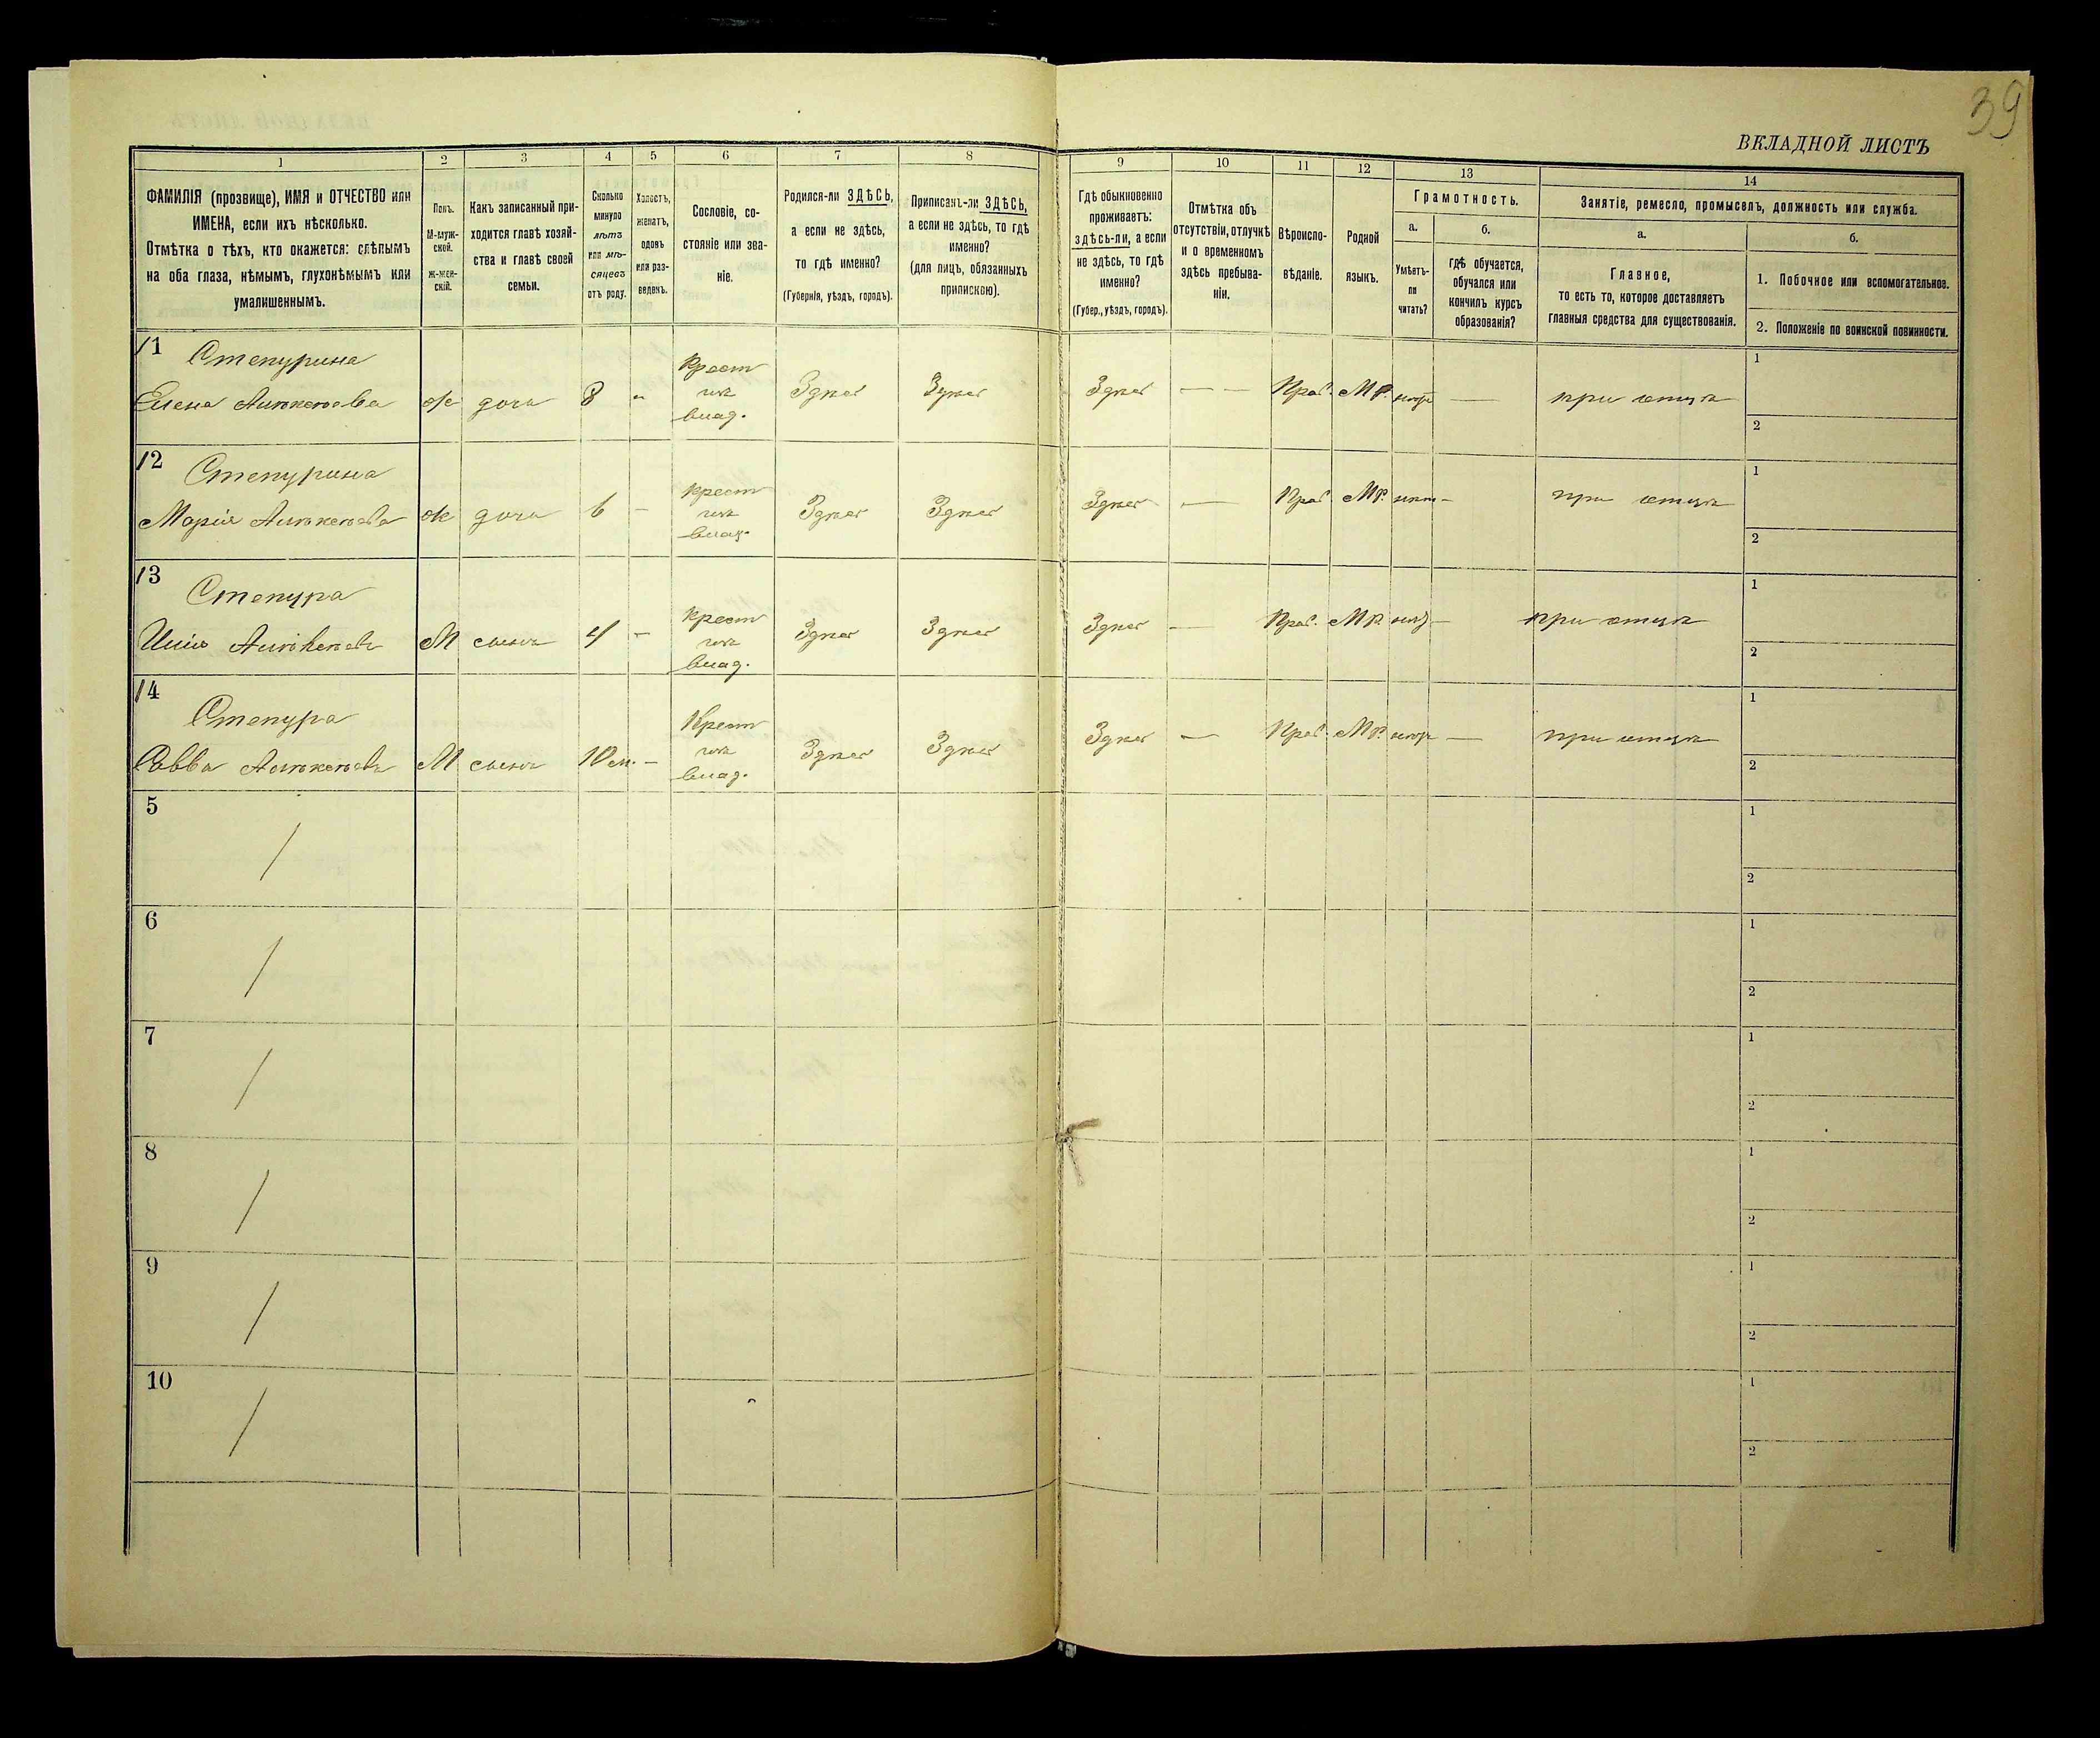 39
ВКЛАДНОЙ ЛИСТЪ
1 2 3 4 5 6 7 8 9 10 11 12 13 14
ФАМИЛІЯ (прозвище), ИМЯ и ОТЧЕСТВО или
ИМЕНА, если ихъ нѣсколько.
Отмѣтка о тѣхъ, кто окажется: слѣпымъ
на оба глаза, нѣмымъ, глухонѣмымъ или
умалишеннымъ.
Полъ.
М-муж-
ской.
ж-жен-
скій.
Какъ записанный при-
ходится главѣ хозяй-
ства и главѣ своей
семьи.
Сколько
минуло
лѣтъ
или мѣ-
сяцевъ
отъ роду.
Холостъ,
женатъ,
вдовъ
или раз-
веденъ.
Сословіе, со-
стояніе или зва-
ніе.
Родился-ли ЗДѢСЬ,
а если не здѣсь,
то гдѣ именно?
(Губернія, уѣздъ, городъ).
Приписанъ-ли ЗДѢСЬ,
а если не здѣсь, то гдѣ
именно?
(для лицъ, обязанныхъ
припискою).
Гдѣ обыкновенно
проживаетъ:
здѣсь-ли, а если
не здѣсь, то гдѣ
именно?
(Губер., уѣздъ, городъ).
Отмѣтка объ
отсутствіи, отлучкѣ
и о временномъ
здѣсь пребыва-
ніи.
Вѣроиспо-
вѣданіе.
Родной
языкъ.
Грамотность.
а.
Умѣетъ-
ли
читать?
б.
гдѣ обучается,
обучался или
кончилъ курсъ
образованія?
Занятіе, ремесло, промыселъ, должность или служба.
а.
Главное,
то есть то, которое доставляетъ
главныя средства для существованія.
б.
1. Побочное или вспомогательное.
2. Положеніе по воинской повинности.
11 Степурина
Елена Алѣксѣева ж дочь 8 - Крест
изъ
влад. Здѣсь Здѣсь Здѣсь — — Прав. М.Р. — при отцѣ 1
2
12 Степурина
Марія Алѣксѣева ж дочь 6 - крест
изъ
влад. Здѣсь Здѣсь Здѣсь — Прав. М.Р. — при отцѣ 1
2
13 Степура
Алѣксѣевъ М сынъ 4 - крест
изъ
влад. Здѣсь Здѣсь Здѣсь — Прав. М.Р. — при отцѣ 1
2
14 Степура
Савва Алѣксѣевъ М сынъ 10 м. - Крест
изъ
влад. Здѣсь Здѣсь Здѣсь — Прав. М.Р. — при отцѣ 1
2
5 / 1
2
6 / 1
2
7 / 1
2
8 / 1
2
9 / 1
2
10 / 1
2